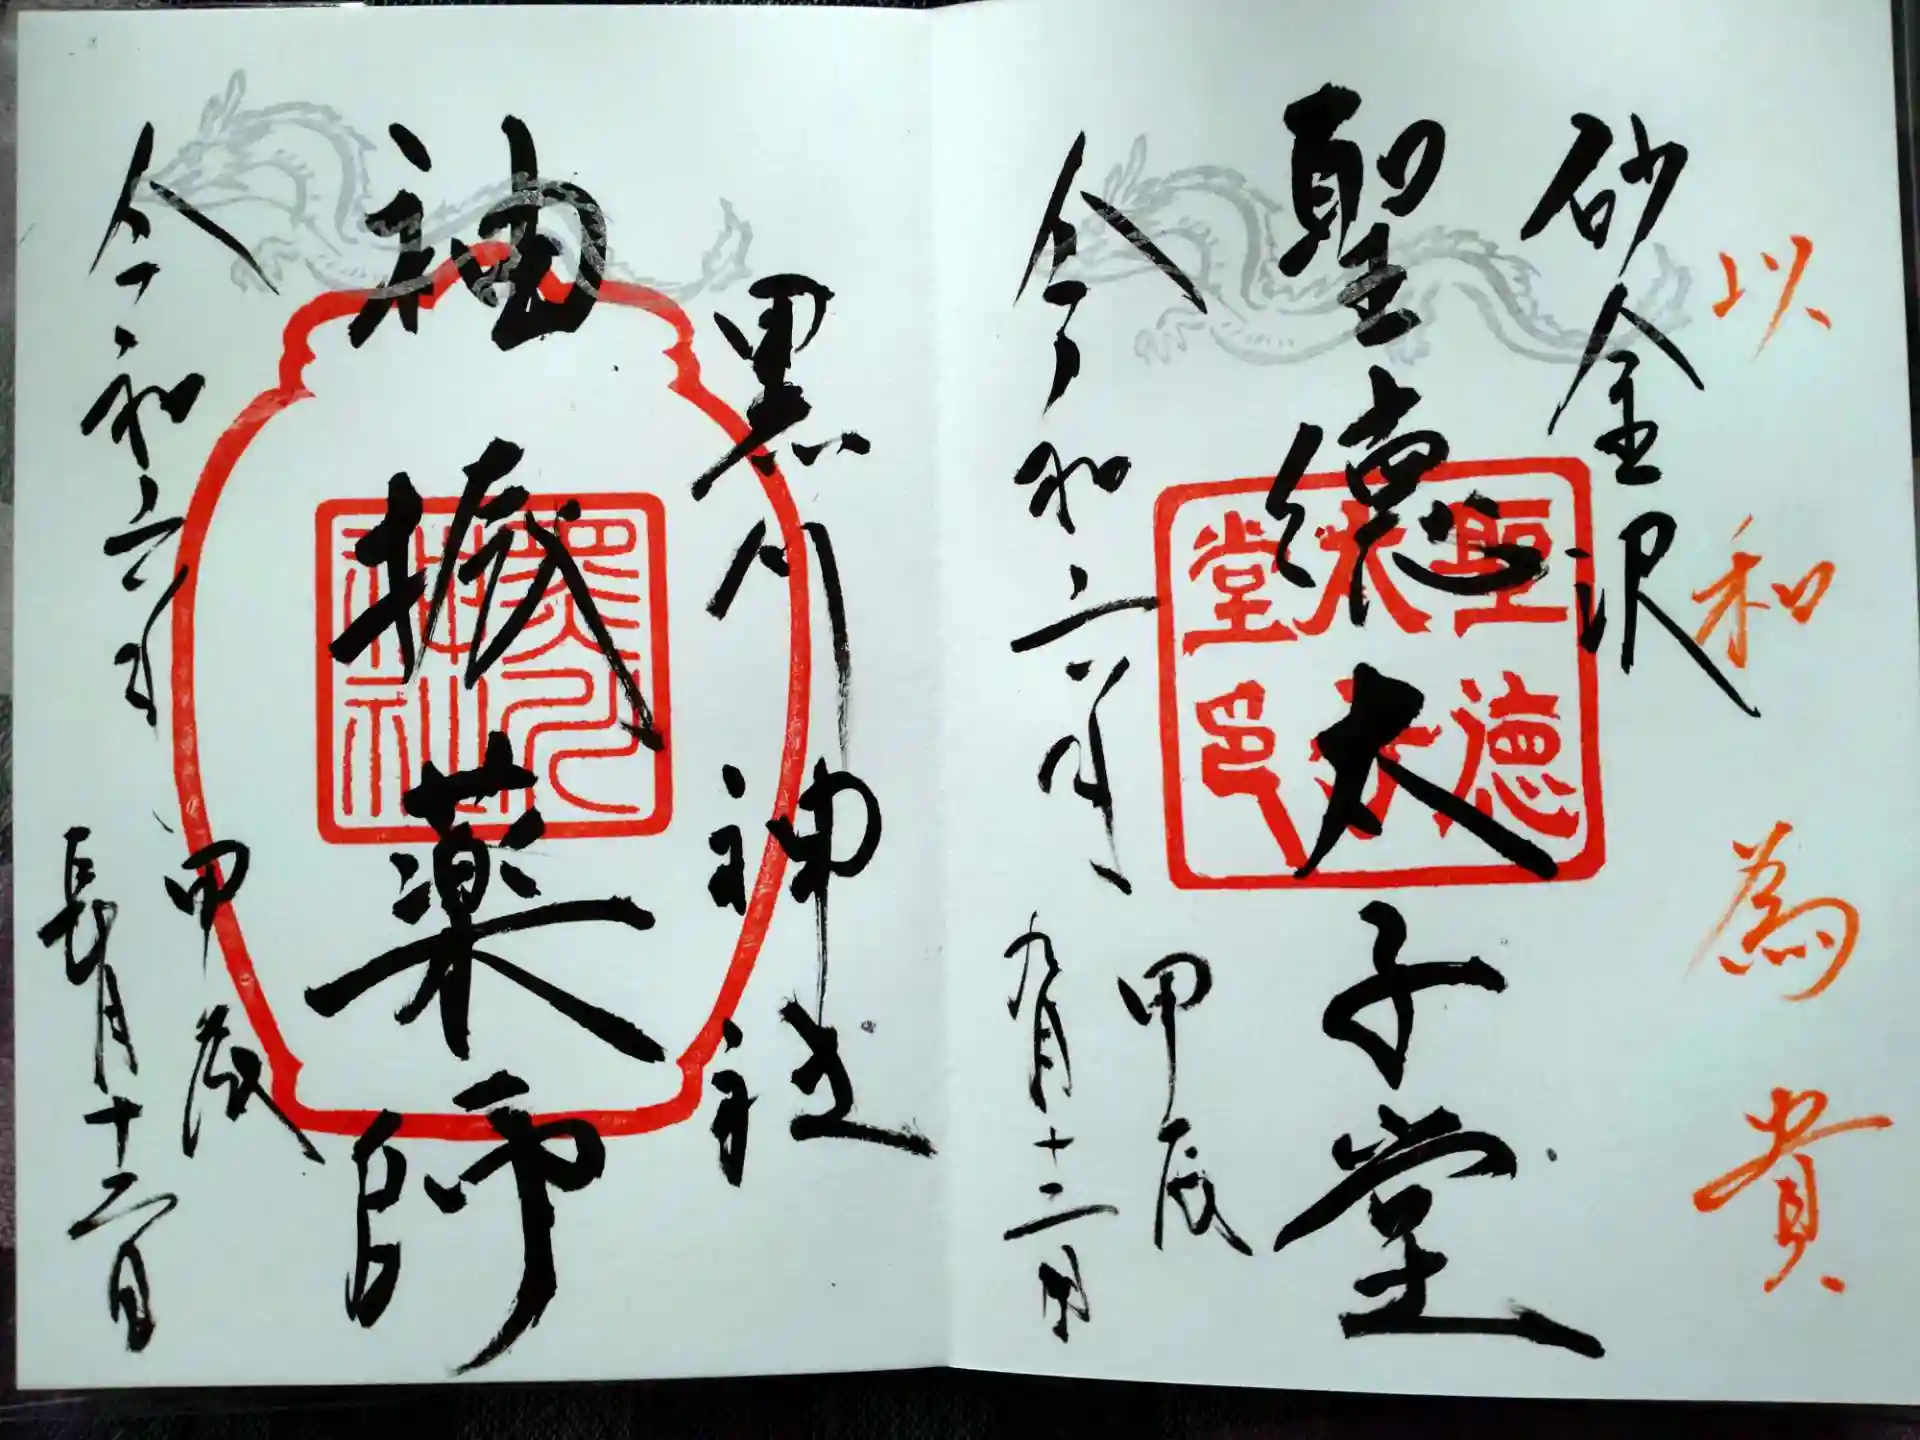 以和為貴
砂金沢
聖徳太子堂
聖徳太子堂印
令和六年
甲辰
九月十二日
黒川神社
袖振薬師
黒川神社
令和六年
甲辰
長月十二日